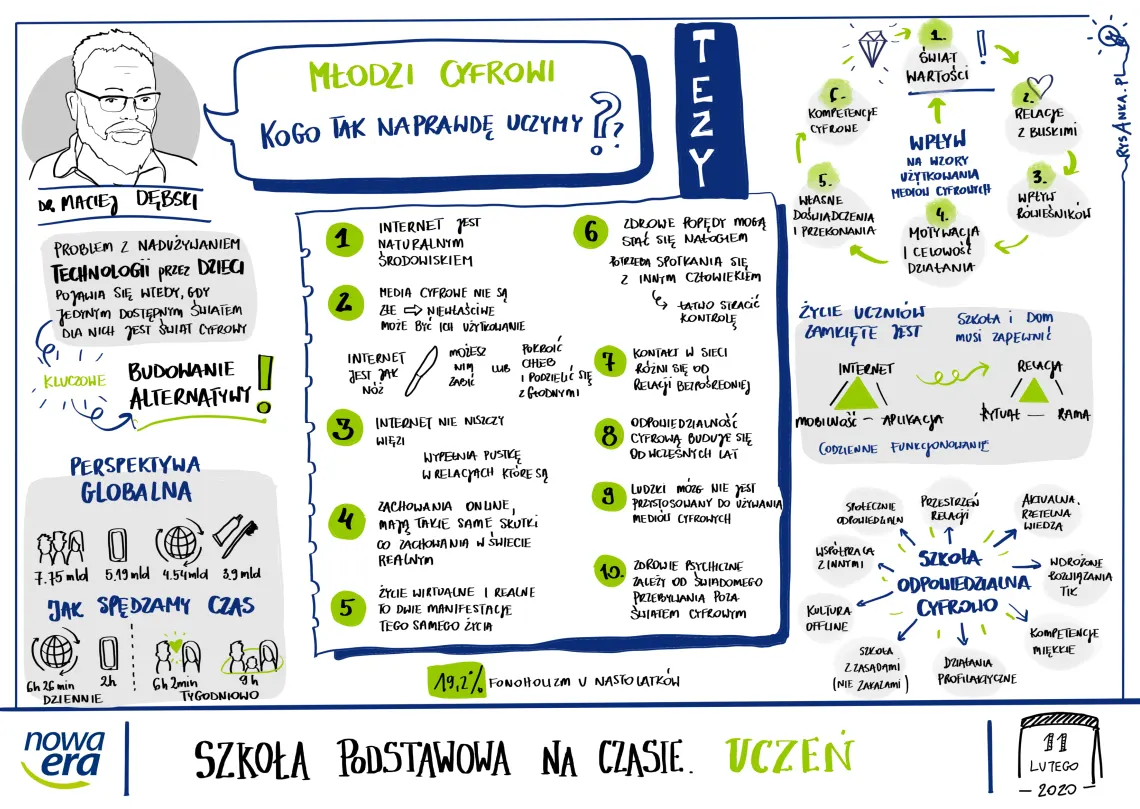 MŁODZI CYFROWI
KOGO TAK NAPRAWDĘ UCZYMY ???
DR MACIEJ DĘBSKI
PROBLEM Z NADUŻYWANIEM
TECHNOLOGII PRZEZ DZIECI
POJAWIA SIĘ WTEDY, GDY
JEDYNYM DOSTĘPNYM ŚWIATEM
DLA NICH JEST ŚWIAT CYFROWY
KLUCZOWE
BUDOWANIE
ALTERNATYWY!
PERSPEKTYWA
GLOBALNA
7.75 mld
5.19 mld
4.54 mld
3.9 mld
JAK SPĘDZAMY CZAS
6h 26 min
2h
DZIENNIE
6h 2min
9h
TYGODNIOWO
TEZY
1
INTERNET JEST
NATURALNYM
ŚRODOWISKIEM
2
MEDIA CYFROWE NIE SĄ
ZŁE ⇨ NIEWŁAŚCIWE
MOŻE BYĆ ICH UŻYTKOWANIE
INTERNET
JEST JAK
NÓŻ
MOŻESZ
NIM
ZABIĆ
LUB
POKROIĆ
CHLEB
I PODZIELIĆ SIĘ
Z GŁODNYMI
3
INTERNET NIE NISZCZY
WIĘZI
WYPEŁNIA PUSTKĘ
W RELACJACH KTÓRE SĄ
4
ZACHOWANIA ONLINE,
MAJĄ TAKIE SAME SKUTKI
CO ZACHOWANIA W ŚWIECIE
REALNYM
5
ŻYCIE WIRTUALNE I REALNE
TO DWIE MANIFESTACJE
TEGO SAMEGO ŻYCIA
6
ZDROWE POPĘDY MOGĄ
STAĆ SIĘ NAŁOGIEM
POTRZEBA SPOTKANIA SIĘ
Z INNYM CZŁOWIEKIEM
ŁATWO STRACIĆ
KONTROLĘ
7
KONTAKT W SIECI
RÓŻNI SIĘ OD
RELACJI BEZPOŚREDNIEJ
8
ODPOWIEDZIALNOŚĆ
CYFROWĄ BUDUJE SIĘ
OD WCZESNYCH LAT
9
LUDZKI MÓZG NIE JEST
PRZYSTOSOWANY DO UŻYWANIA
MEDIÓW CYFROWYCH
10.
ZDROWIE PSYCHICZNE
ZALEŻY OD ŚWIADOMEGO
PRZEBYWANIA POZA
ŚWIATEM CYFROWYM
19,2% FONOHOLIZM U NASTOLATKÓW
1.
ŚWIAT
WARTOŚCI
!
2.
RELACJE
Z BLISKIMI
3.
WPŁYW
RÓWIEŚNIKÓW
4.
MOTYWACJA
I CELOWOŚĆ
DZIAŁANIA
5.
WŁASNE
DOŚWIADCZENIA
I PRZEKONANIA
6.
KOMPETENCJE
CYFROWE
WPŁYW
NA WZORY
UŻYTKOWANIA
MEDIÓW CYFROWYCH
RYSANKA.PL
ŻYCIE UCZNIÓW
ZAMKNIĘTE JEST
SZKOŁA I DOM
MUSI ZAPEWNIĆ
INTERNET
MOBILNOŚĆ – APLIKACJA
RELACJA
RYTUAŁ — RAMA
CODZIENNE FUNKCJONOWANIE
SZKOŁA
ODPOWIEDZIALNA
CYFROWO
SPOŁECZNIE
ODPOWIEDZIALN
PRZESTRZEŃ
RELACJI
AKTUALNA,
RZETELNA
WIEDZA
WDROŻONE
ROZWIĄZANIA
TIK
KOMPETENCJE
MIĘKKIE
DZIAŁANIA
PROFILAKTYCZNE
SZKOŁA
Z ZASADAMI
(NIE ZAKAZAMI)
KULTURA
OFFLINE
WSPÓŁPRACA
Z INNYMI
nowa
era
SZKOŁA PODSTAWOWA NA CZASIE. UCZEŃ
11
LUTEGO
– 2020 –